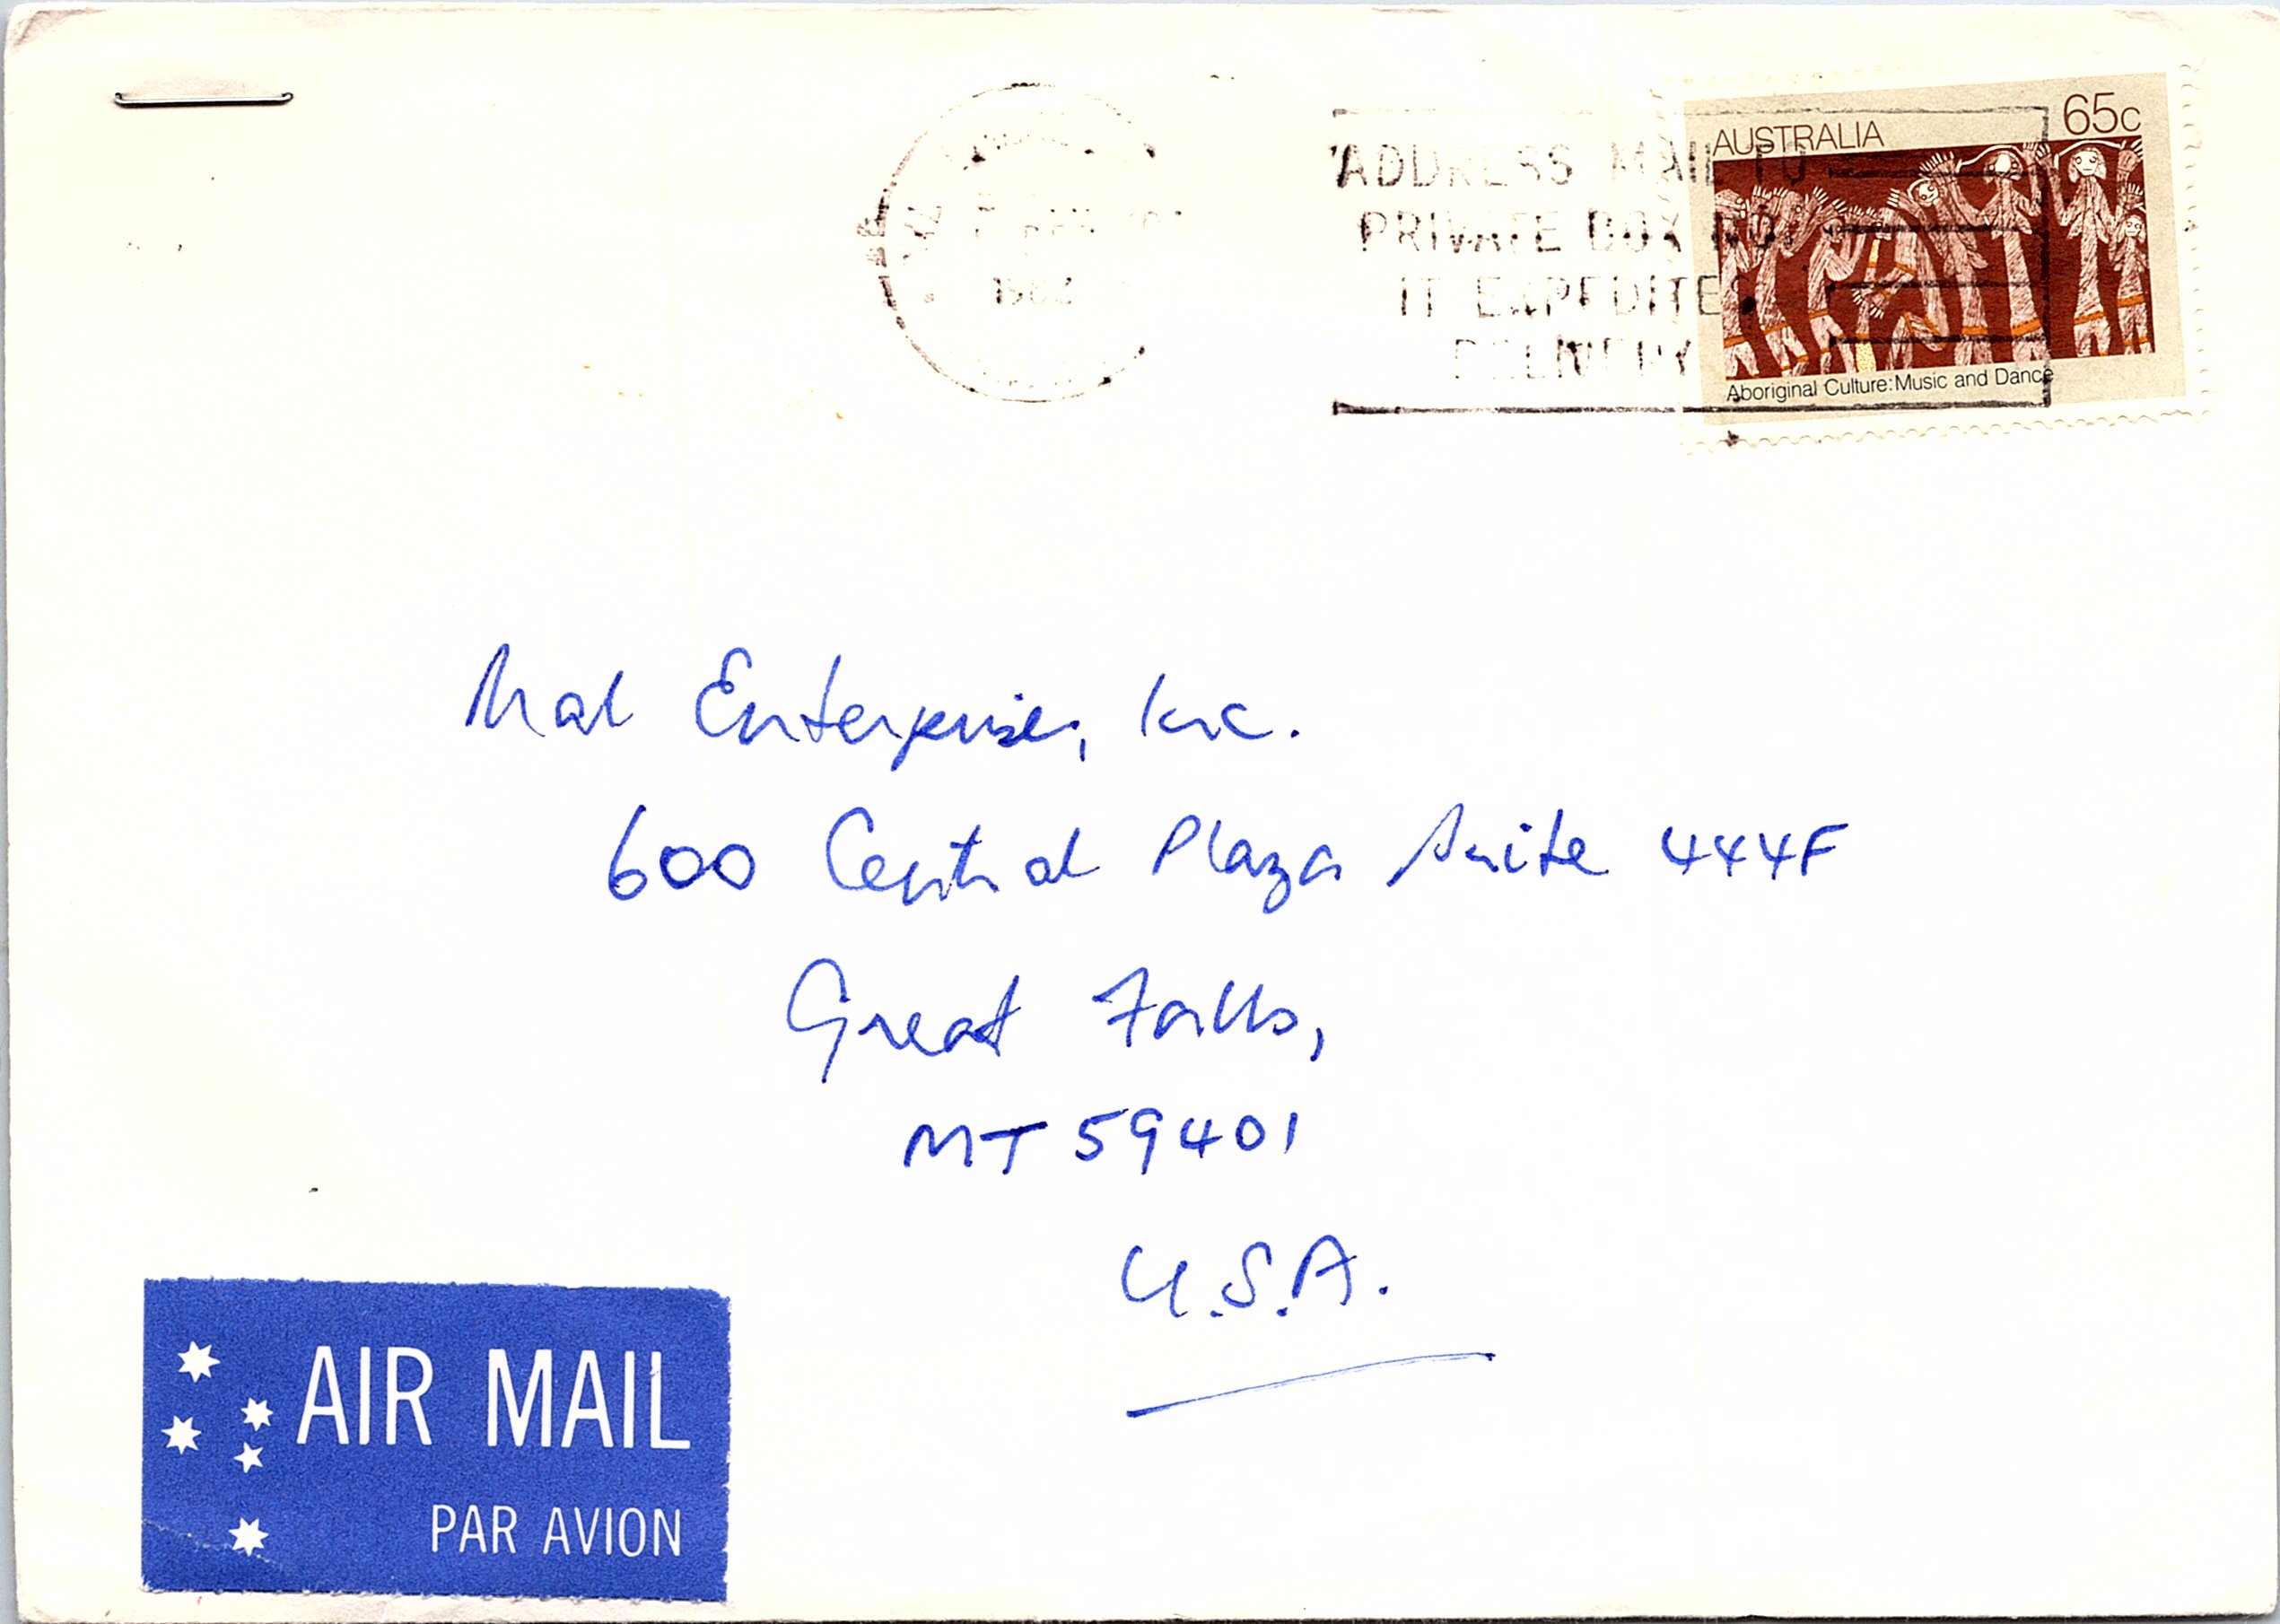 AUSTRALIA 65c
Aboriginal Culture: Music and Dance
ADDRESS MAIL TO
PRIVATE BOX NO.
IT EXPEDITES
DELIVERY
Mal Enterprises, Inc.
600 Central Plaza Suite 444F
Great Falls,
MT 59401
U.S.A.
AIR MAIL
PAR AVION